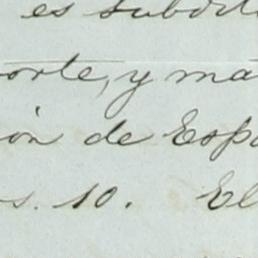 es subdit
orte, y ma
ón de Espa
s. 10. El